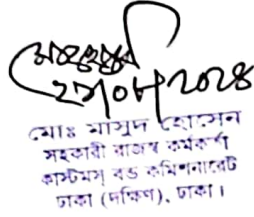 ২৭০৮২০২৪
মোঃ মাসুদ হোসেন
সহকারী রাজস্ব কর্মকর্তা
কাস্টমস্ বন্ড কমিশনারেট
ঢাকা (দক্ষিণ), ঢাকা।